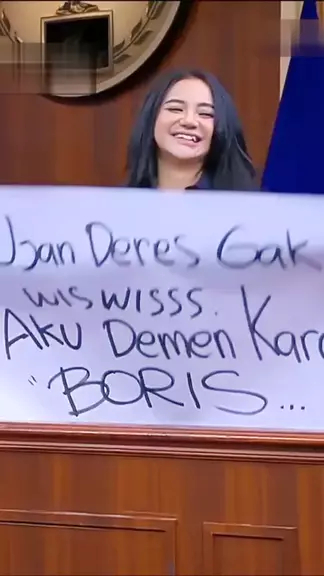 Ujan Deres Gak
WIS WISSS.
AKU Demen Karo
"BORIS...